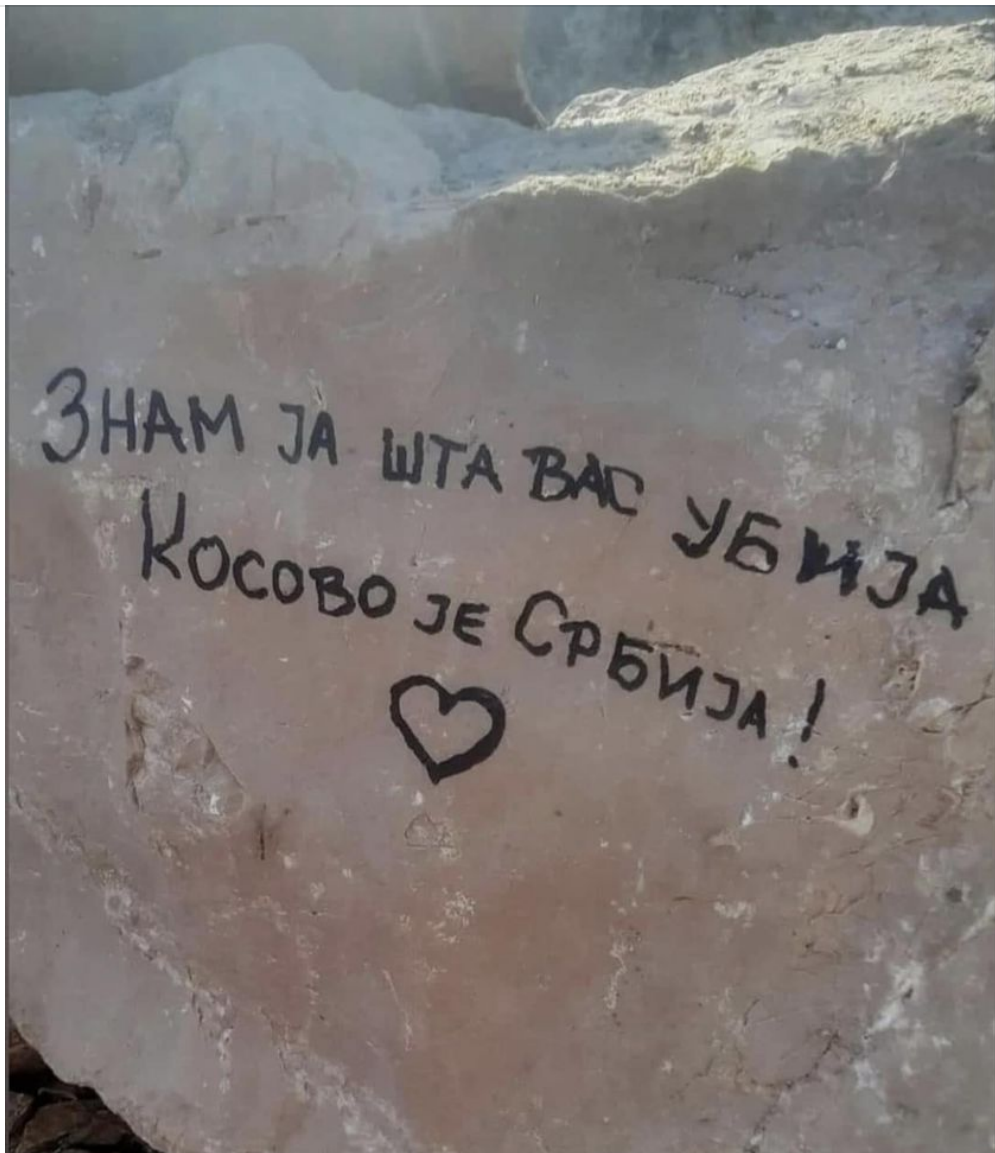 Знам ја шта вас убија
Косово је Србија!